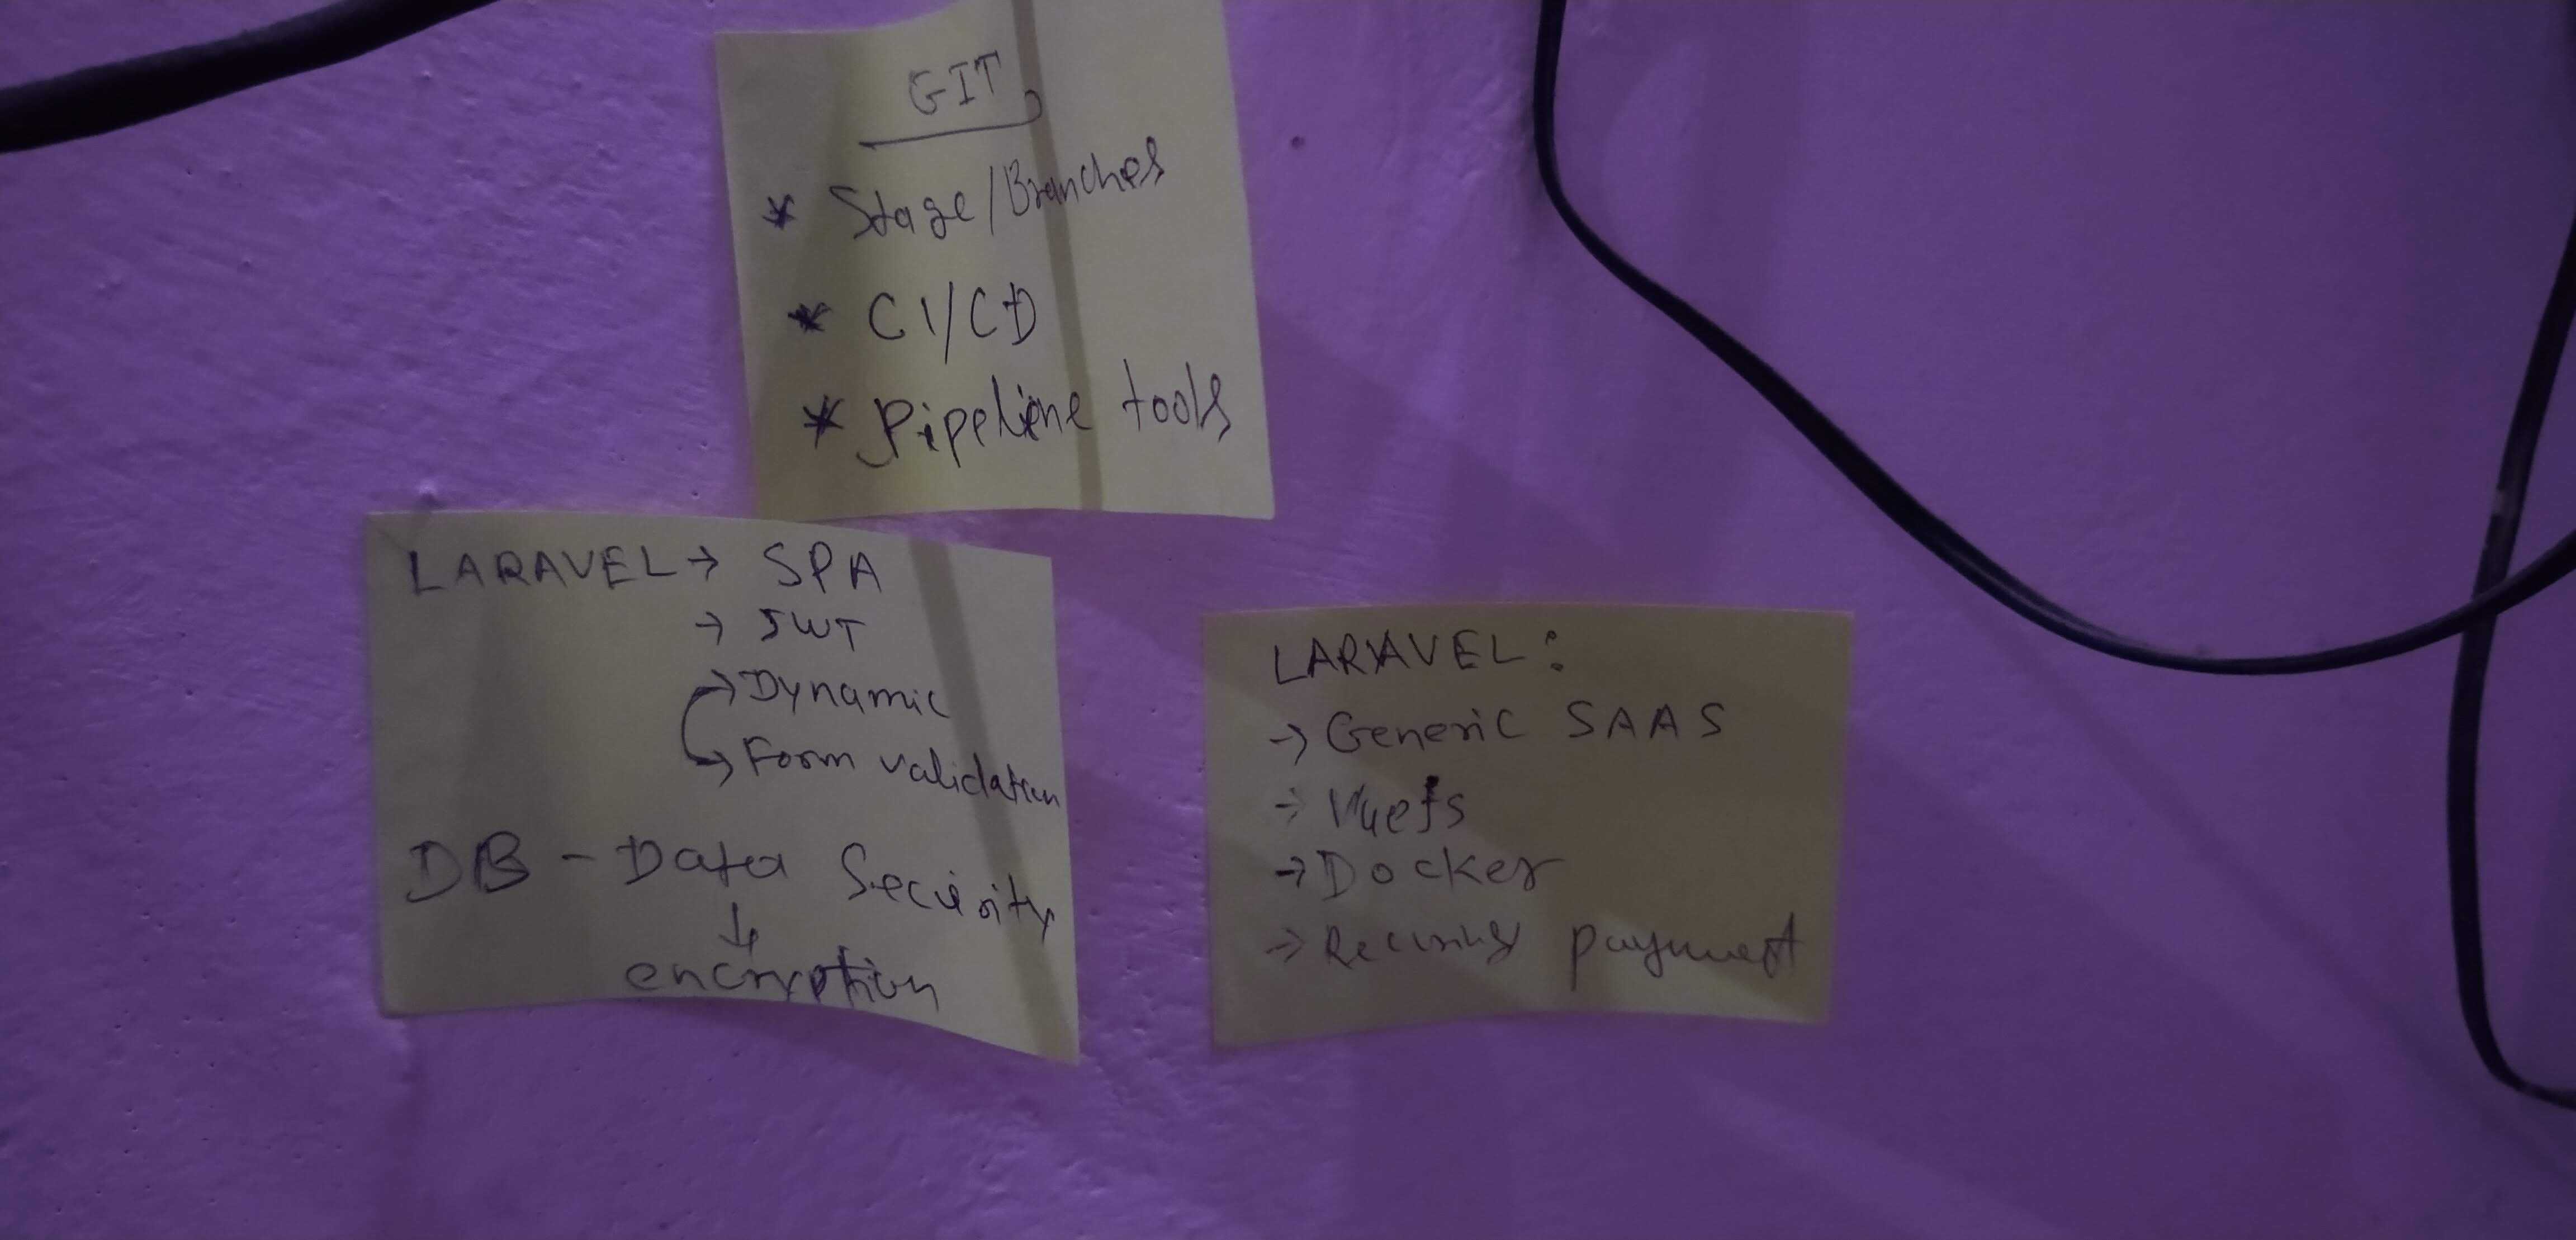 GIT
* Stage/Branches
* CI/CD
* Pipeline tools
LARAVEL → SPA
→ JWT
→ Dynamic
→ Form validation
DB - Data Security
↓
encryption
LARAVEL:
→ Generic SAAS
→ Vuejs
→ Docker
→ Recuring payment